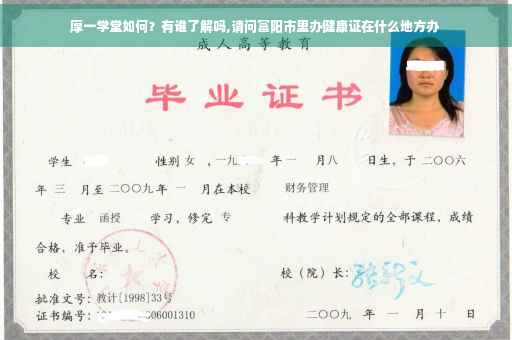 厚一学堂如何？有谁了解吗,请问富阳市里办健康证在什么地方办
成人高等教育
毕业证书
学生 性别 女 ,一九 年一 月八 日生，于二〇〇六
年 三 月至二〇〇九年 一 月在本校 财务管理
专业 函授 学习，修完 专 科教学计划规定的全部课程，成绩
合格，准予毕业。
校 名： 校（院）长：
批准文号：教计[1998]33号
证书编号： 06001310 二〇〇九 年 一 月 十 日